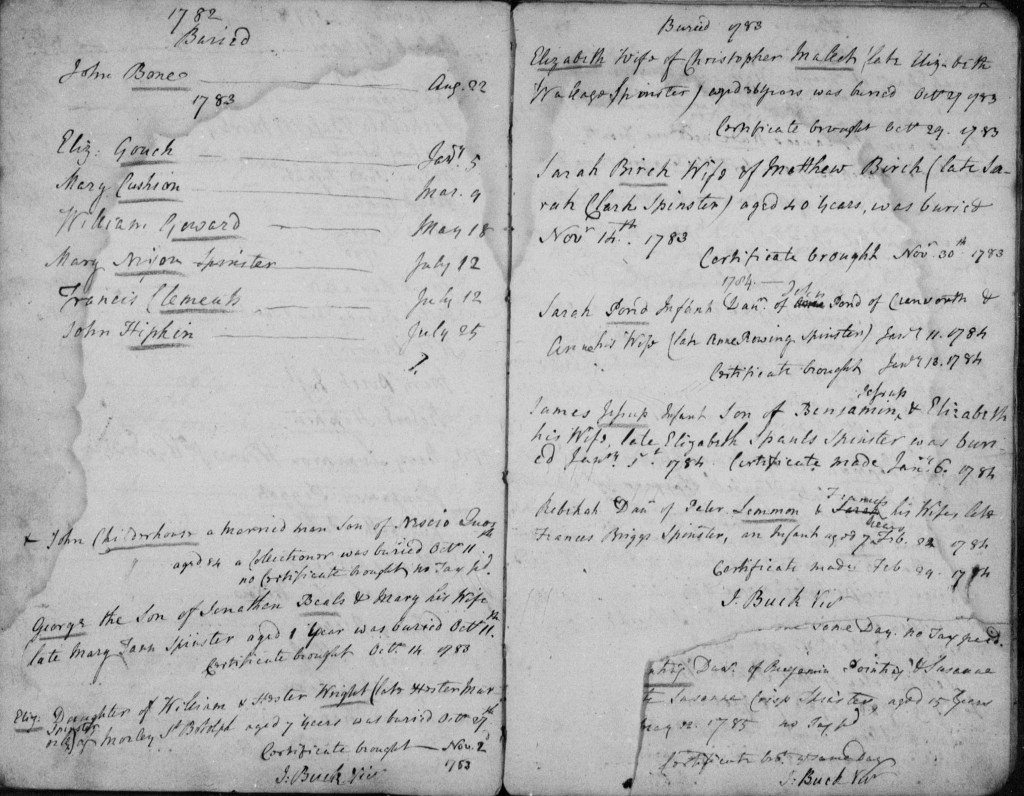 1782
Buried
John Bone Aug. 22
1783
Eliz: Gouch Jany 5
Mary Cushion Mar. 9
William Howard May 18
Mary Nixon Spinster July 12
Francis Clements July 12
John Hipkin July 25
John Childerhouse a married man Son of
aged 84 a Collectioner was buried Octr 11th
no Certificate brought, no Tax pd.
George the Son of Jonathan Beals & Mary his Wife
late Mary Tann Spinster aged 1 Year was buried Octr 11th
Certificate brought Octr 14 1783
Eliz: Daughter of William & Hester Wright (late Hester Mar
Spinster) of Morley St Botolph aged 7 years was buried Octr 29th
Certificate brought Nov. 2d
1783
J. Buck Vir
Buried 1783
Elizabeth Wife of Christopher Mallett (late Elizabeth
Wallage Spinster) aged 36 Years was buried Octr 27 1783
Certificate brought Octr 29. 1783
Sarah Birch Wife of Matthew Birch (late Sa-
rah Clark Spinster) aged 40 Years, was buried
Novr 14th. 1783
Certificate brought Novr 30th 1783
1784
John
Sarah Pond Infant Daur of Pond of Cranworth &
Anne his Wife (late Anne Rowing Spinster) Janr 11. 1784
Certificate brought Janr 13. 1784
Jessup
James Jessup Infant Son of Benjamin & Elizabeth
his Wife, late Elizabeth Spauls Spinster was buri
ed Janry 5th 1784 Certificate made Janry 6. 1784
Frances
Rebekah Daur of Peter Lemmon & Sarah his Wife late
years
Frances Briggs Spinster, an Infant aged 7 Feb. 22 1784
Certificate made Feb 29. 1784
J. Buck Vir
me same Day. no Tax paed.
Daur of Benjamin Pointing & Susanne
Susanne Crisp Spinster, aged 15 Years
22. 1785 no Tax pd
Certificate bt. same Day
J: Buck Vir